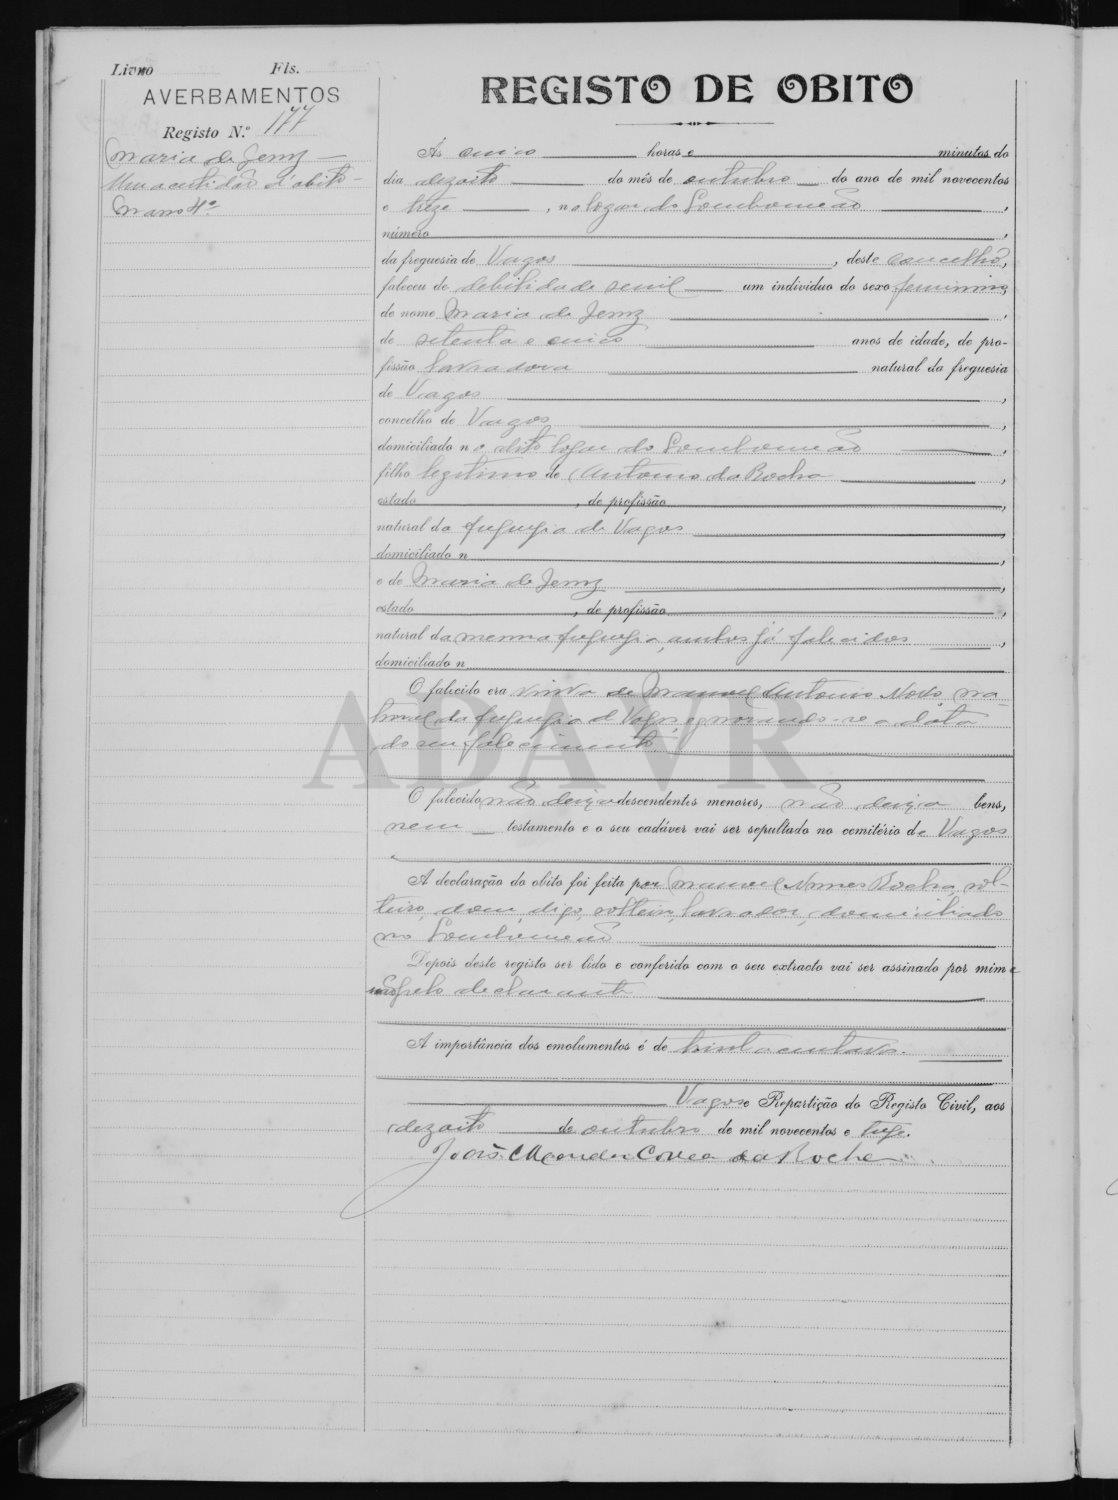 Livro Fls.
AVERBAMENTOS
Registo N.º 177
Maria de Jesus
Uma certidão d'obito
Maço 4º
REGISTO DE OBITO
Ás cinco horas e minutos do
dia dezoito do mês de outubro do ano de mil novecentos
e treze, no logar do Lombomeão,
número,
da freguesia de Vagos, deste concelho,
faleceu de debilidade senil um individuo do sexo feminino,
de nome Maria de Jesus,
de setenta e cinco anos de idade, de pro-
fissão lavradora natural da freguesia
de Vagos,
concelho de Vagos,
domiciliado no dito logar do Lombomeão,
filho legitimo de Antonio da Rocha,
estado, de profissão,
natural da freguesia de Vagos,
domiciliado n,
e de Maria de Jesus,
estado, de profissão,
natural da mesma freguesia, ambos já falecidos,
domiciliado n
O falecido era viuva de Manuel Antonio Novo, na-
tural da freguesia de Vagos, ignorando-se a data
do seu falecimento
ADAVR
O falecido não deixa descendentes menores, não deixa bens,
nem testamento e o seu cadáver vai ser sepultado no cemitério de Vagos
A declaração do obito foi feita por Manuel Nunes Rocha, sol-
teiro, dom, digo, solteiro, lavrador, domiciliado
no Lombomeão
Depois deste registo ser lido e conferido com o seu extracto vai ser assinado por mim e
não pelo declarante
A importância dos emolumentos é de trinta centavos.
Vagos e Repartição do Registo Civil, aos
dezoito de outubro de mil novecentos e treze.
João Mendes Correa da Rocha